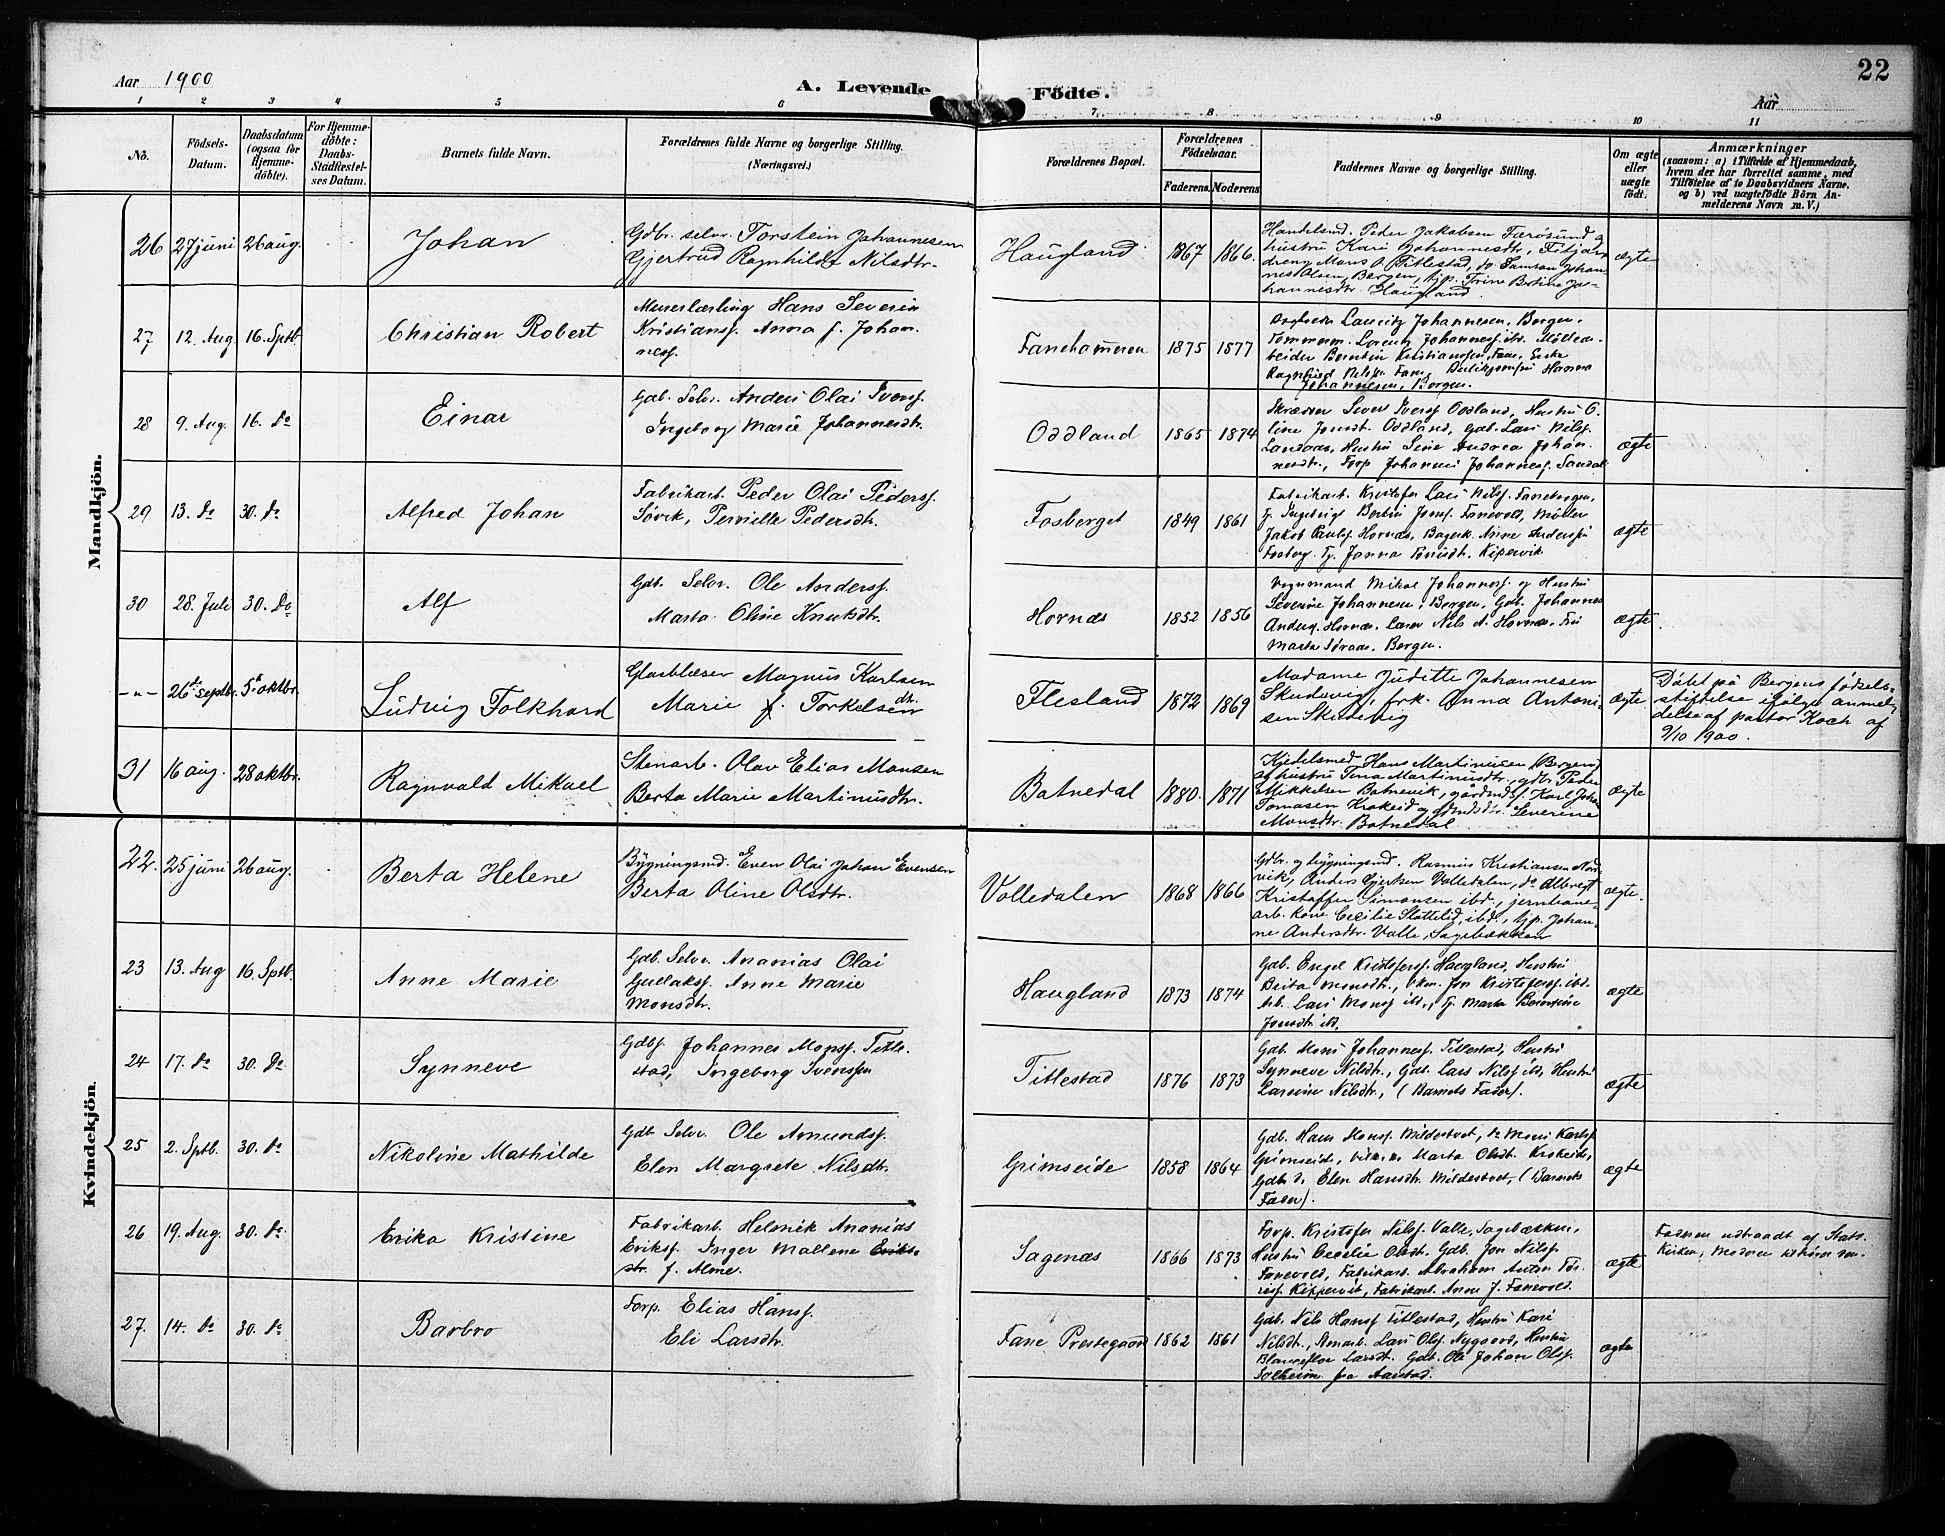 22
Aar 1900
A. Levende Födte.
Aar
1 2 3 4 5 6 7 8 9 10 11
No.
Födsels-
Datum.
Daabsdatum
(ogsaa for
Hjemme-
döbte).
For Hjemme-
döbte:
Daabs-
Stadfæstel-
ses Datum.
Barnets fulde Navn.
Forældrenes fulde Navne og borgerlige Stilling.
(Næringsvei.)
Forældrenes Bopæl.
Forældrenes
Födselsaar.
Faderens. Moderens.
Faddernes Navne og borgerlige Stilling.
Om ægte
eller
uægte
födt.
Anmærkninger
(saasom: a) i Tilfælde af Hjemmedaab,
hvem der har forrettet samme, med
Tilföielse af to Daabsvidners Navne.
og b) ved uægtefödte Börn An-
melderens Navn m. V.)
Mandkjön.
26 27 juni 26 aug. Johan
Gdbr. selv. Torstein Johannesen
Gjertrud Ragnhilde Nilsdtr.
Haugland 1867 1866.
Handelsmd. Peder Jakobsen Færösund og
hustru Kari Johannesdtr, Fitjar,
dreng Mons O. Titlestad, do Samson Johan
nes Olsen, Bergen, tjp. Trine Bertine Jo-
hannesdtr. Haugland.
ægte
27 12. Aug. 16. Sptb. Christian Robert
Murerlærling Hans Severin
Kristiansf. Anna f. Johan
nesf.
Fanehammeren 1875 1877
Lauritz Johannesen, Bergen,
Tømmerm. Lorentz Johannesf. ibd. Möllear-
beider Berntin Kristiansen, Fane, Enke
Ragnhild Nilsf. Fane, Butikjomfru Hanna
Johannesen, Bergen.
28 9. Aug. 16. Do Einar
Gdb. Selv. Anders Olai Iversf.
Ingeborg Marie Johannesdtr.
Oddland 1865 1874
Skræder Sever Iversf Oddland, Hustru O.
line Jonsdt. Oddland, Gdb. Lars Nilsf.
Landaas, Hustru Sine Andrea Johan.
nesdtr., Forp Johannes Johannesf. Sandal
ægte
29 13. Do 30. Do Alfred Johan
Fabrikarb. Peder Olai Pedersf.
Søvik, Pernille Pedersdtr.
Fosberget 1849 1861
Fabrikarb. Kristofer Lars Nilsf. Faneborgen,
Tj. Ingeborg Bertin Jonsf. Fanevold, Møller
Jakob Paulsf. Hornæs, Bagersk. Anine Andersen
Fosberg. Tj. Janna Knudsdt. Kipervik
ægte
30 28. Juli 30. Do Alf
Gdb. Selv. Ole Andersf.
Marta Oline Knutsdtr.
Hornæs 1852 1856
Vognmand Mikal Johannesf. og Hustru
Severine Johannesen, Bergen, Gdb. Johannes
Andersf. Hornæs. Lærer Nils A. Hornæs. Frk
Marta Søraas, Bergen.
ægte
-"- 26de septbr. 5te oktbr. Ludvig Folkhard
Glasblæser Magnus Karlsen
Marie f. Torkelsendtr.
Flesland 1872 1869
Madame Judette Johannesen
Skudevig, frk. Anna Antoni-
sen Skudevig
ægte
Döbt på Bergens födsels-
stiftelse ifølge anmel-
delse af pastor Koch af
9/10 1900.
31 16 aug. 28 oktbr. Ragnvald Mikael
Stenarb. Olav Elias Monsen
Berta Marie Martinusdtr.
Botnedal 1880. 1871
Kjedelsmed Hans Martinusen (Bergen)
og hustru Tina Martinusdtr., gdbr. Peder
Mikkelsen Botnevik, gårdmds. Karl Johan
Tomasen Krokeid og gdmdsdtr. Severine
Monsdtr. Botnedal
ægte
Kvindekjön.
22. 25 juni 26 aug. Berta Helene
Bygningsmd. Even Olai Johan Evensen
Berta Oline Olsdtr.
Volledalen 1868 1866
Gdbr. og bygningsmd. Rasmus Kristiansen Nord
vik, Anders Gjertsen Volledalen, do Albregt
Kristoffer Simonsen ibd., jernbane-
arb. kone Cecilie Slottelid, ibd., tjp. Johan-
ne Andersdtr. Valle, Sagebækken
ægte.
23 13. Aug 16. Sptb. Anne Marie
Gdb. Selv. Ananias Olai
Gullaksf. Anne Marie
Monsdtr.
Haugland 1873 1874
Gdb. Engel Kristofersf. Haugland, Hustru
Brita Monsdtr., Ukm. Jon Kristofersf. ibd.
Arb. Lars Monsf ibd., Tj. Marta Berentine
Jonsdtr ibd.
ægte
24 17. Do 30. Do Synneve
Gdbf. Johannes Monsf. Title.
stad, Ingeborg Svensen
Titlestad 1876 1873
Gdb. Mons Johannesf. Titlestad, Hustru
Synneve Nilsdtr., Gdb. Lars Nilsf ibd, Hustru
Larsine Nilsdtr., (Barnets Fader).
ægte
25 2. Sptb. 30. Do Nikoline Mathilde
Gdb Selv. Ole Amundsf.
Elen Margrete Nilsdtr.
Grimseide 1858 1864
Gdb. Hans Monsf. Mildestvet, Do Mons Karlsf.
Grimseide, Marta Olsdt. Krokeide,
Gdb d. Elen Hansdtr. Mildestvet, (Barnets
Fader).
ægte
26 19. Aug. 30. Do Erika Kristine
Fabrikarb. Helmik Ananias
Eriksf. Inger Mallene Eriks.
dtr. f. Alme.
Sagenæs 1866 1873
Forp. Kristofer Nilsf. Valle, Sagebækken,
Hustru Cecilie Olsdt. Gdb. Jon Nilsf.
Fanevold, Fabrikarb. Abraham Anton Tor.
resf. Kippervik, Fabrikarb. Anne J. Fanevold.
ægte
Faderen udtraadt af Stats.
Kirken, Moderen
27. 14. Do 30. Do Barbro
Forp. Elias Hansf.
Eli Larsdtr.
Fane Prestegaard 1862 1861
Gdb. Nils Hansf Titlestad, Hustru Kari
Nilsdt., Smarb. Lars Olsf. Nygaard, Hustru
Blanseflor Larsdt. Gdb. Ole Johan Olsf.
Solheim fra Aarstad.
ægte